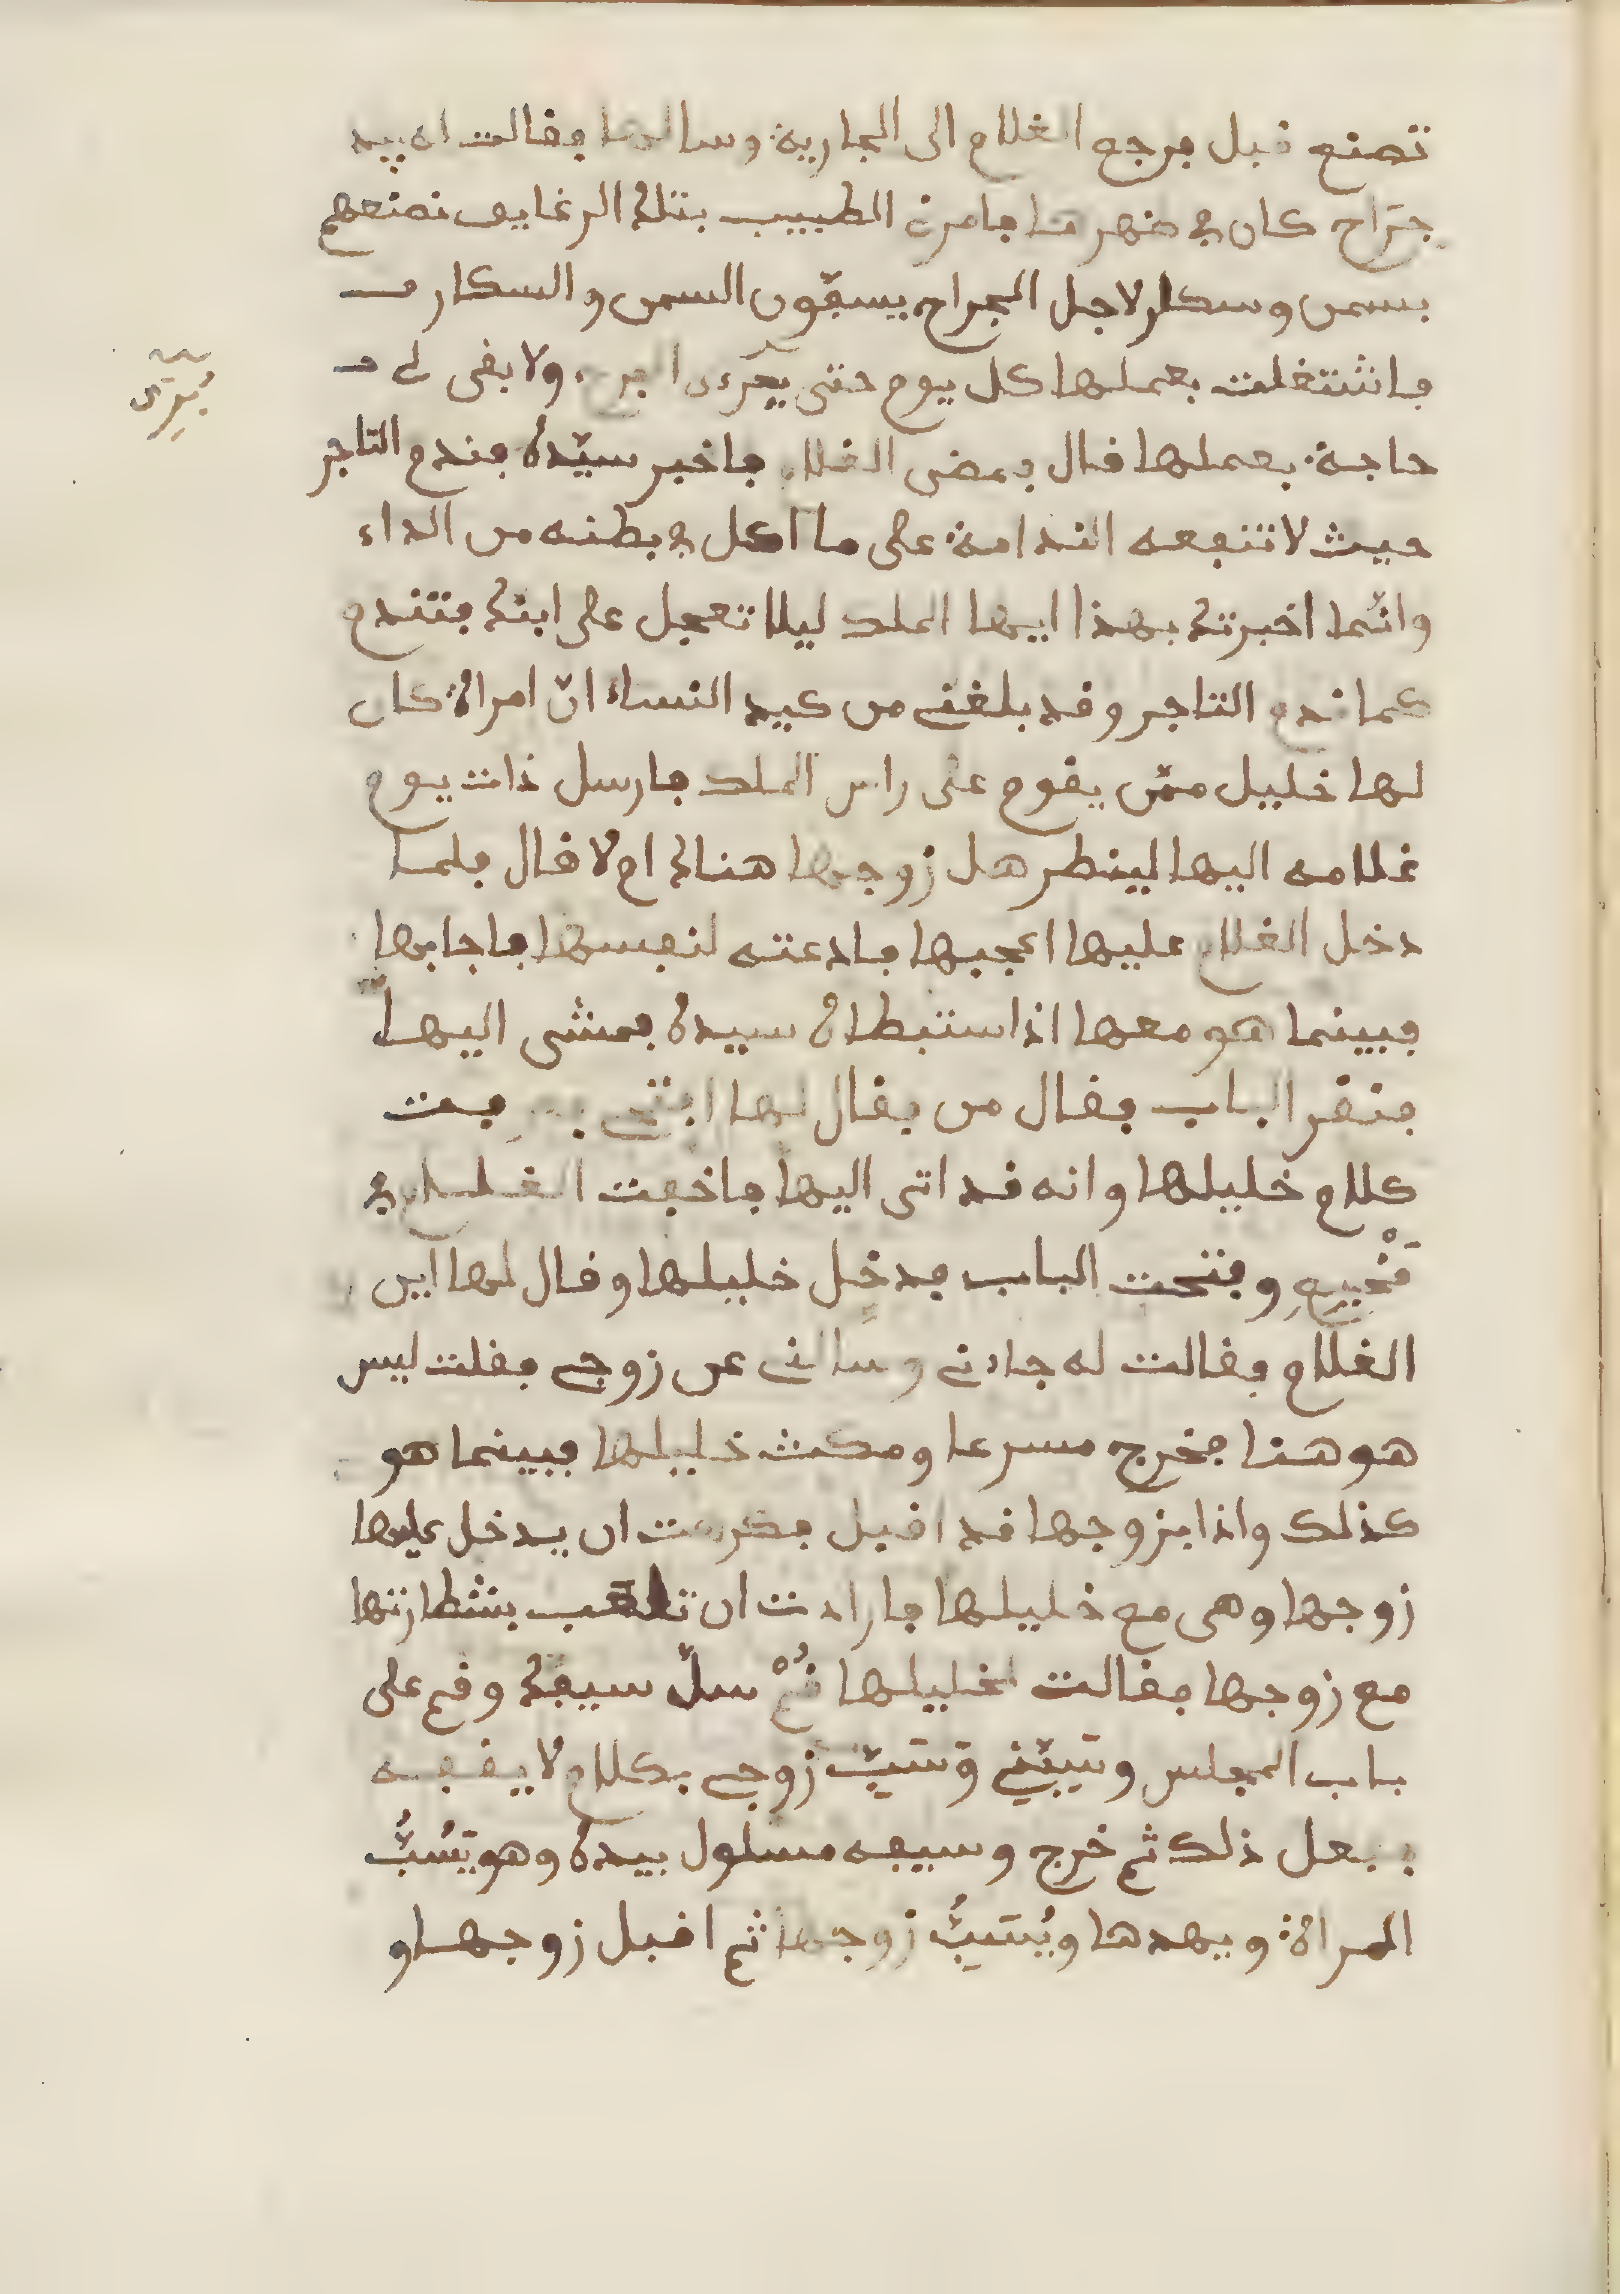 تصنع قبل فرجع الغلام الى الجارية وسالها فقالت له سيد
جرّاح كان في ضهرها فامرني الطبيب بتلك الرغايف نصنعهم
بسمن وسكار لاجل الجراح يسقّون السمن والسكار
فاشتغلت بعملها كل يوم حتى يبرى الجرح ولا بقى لي
يُبرَى
حاجة بعملها قال فمضى الغلام فاخبر سيّده فندم التاجر
حيث لا تنفعه الندامة على ما اكل في بطنه من الداء
وانّما اخبرتك بهذا ايها الملك ليلا تعجل على ابنك فتندم
كما ندم التاجر وقد بلغني من كيد النساء انّ امراة كان
لها خليل ممّن يقوم على راس الملك فارسل ذات يوم
غلامه اليها لينظر هل زوجها هناك ام لا قال فلما
دخل الغلام عليها اعجبها فادعته لنفسها فاجابها
فبينما هو معها اذا ستبطاه سيده فمشى اليها
فنقر الباب فقال من فقال لها افتحي فعرفت
كلام خليلها وانه قد اتى اليها فاخفت الغلام في
مَخْبِيعِ وفتحت الباب فدخل خليلها وقال لها اين
الغلام فقالت له جاءني وسالني عن زوجي فقلت ليس
هو هنا فخرج مسرعا ومكث خليلها فبينما هو
كذلك واذا بزوجها قد اقبل فكرهت ان يدخل عليها
زوجها وهى مع خليلها فارادت ان تلعب بشطارتها
مع زوجها فقالت لخليلها قُمْ سلّ سيفك وقم على
باب المجلس وسَبّني وَسَبّ زوجي بكلام لا يفقه
ففعل ذلك ثم خرج وسيفه مسلول بيده وهو يَسُبُّ
المراة ويهدها ويُسَبُّ زوجها ثم اقبل زوجها و